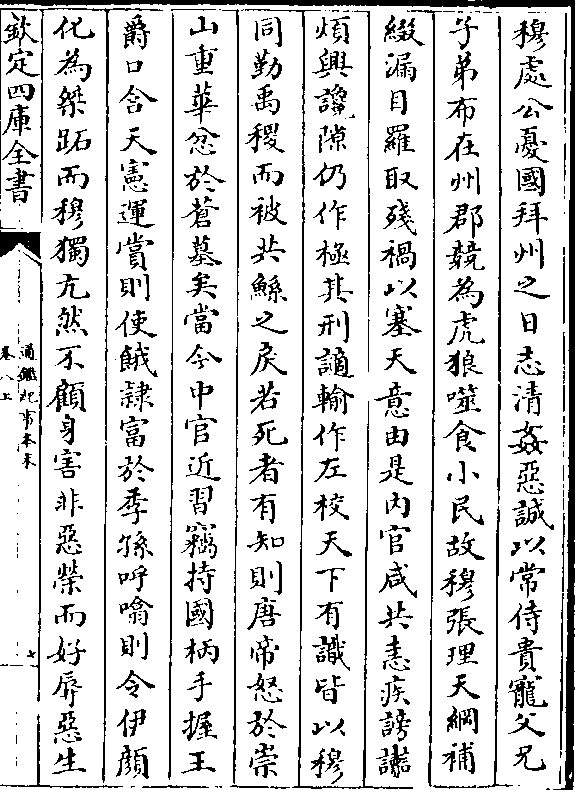 穆處公憂國拜州之日志清姦惡誠以常侍貴寵父兄
子弟布在州郡競為虎狼噬食小民故穆張理天綱補
綴漏目羅取殘禍以塞天意由是内官咸共恚疾謗讟
煩興讒隙仍作極其刑讁輸作左校天下有識皆以穆
同勤禹稷而被共鯀之戾若死者有知則唐帝怒於崇
山重華忿於蒼墓矣當今中官近習竊持國柄手握王
爵口含天憲運賞則使餓隷富於季孫呼噏則令伊顔
化為桀跖而穆獨亢然不顧身害非惡榮而好辱惡生
欽定四庫全書
通鑑紀事本末
卷八上
七